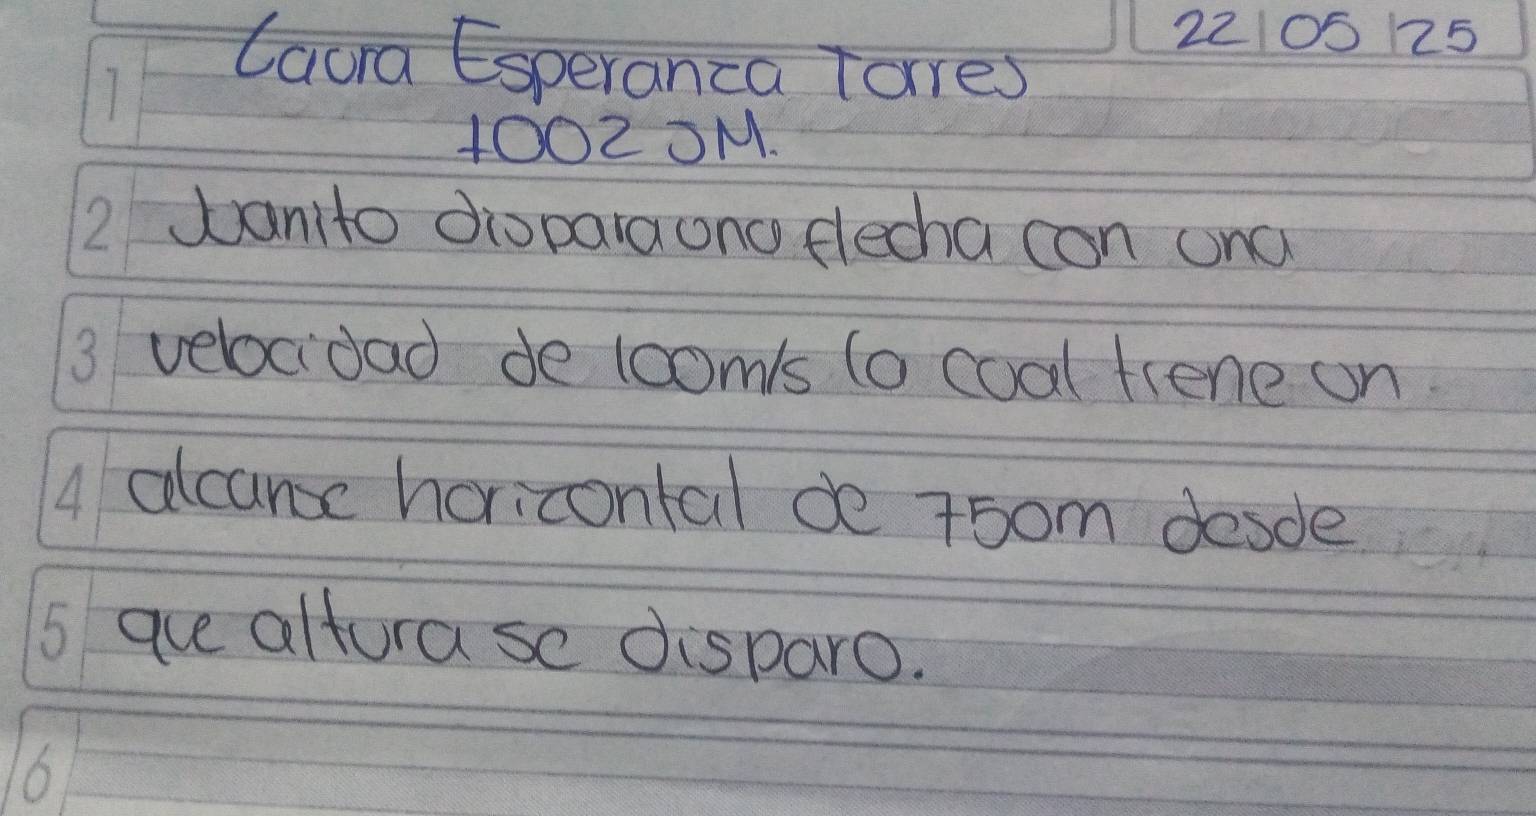 22/05/25
1 Laura Esperanza Torres
1002 JM.
2 Juanito dispara una flecha con una
3 velocidad de 100m/s lo cual tiene un
4 alcance horizontal de 750m desde
5 que altura se disparo.
6